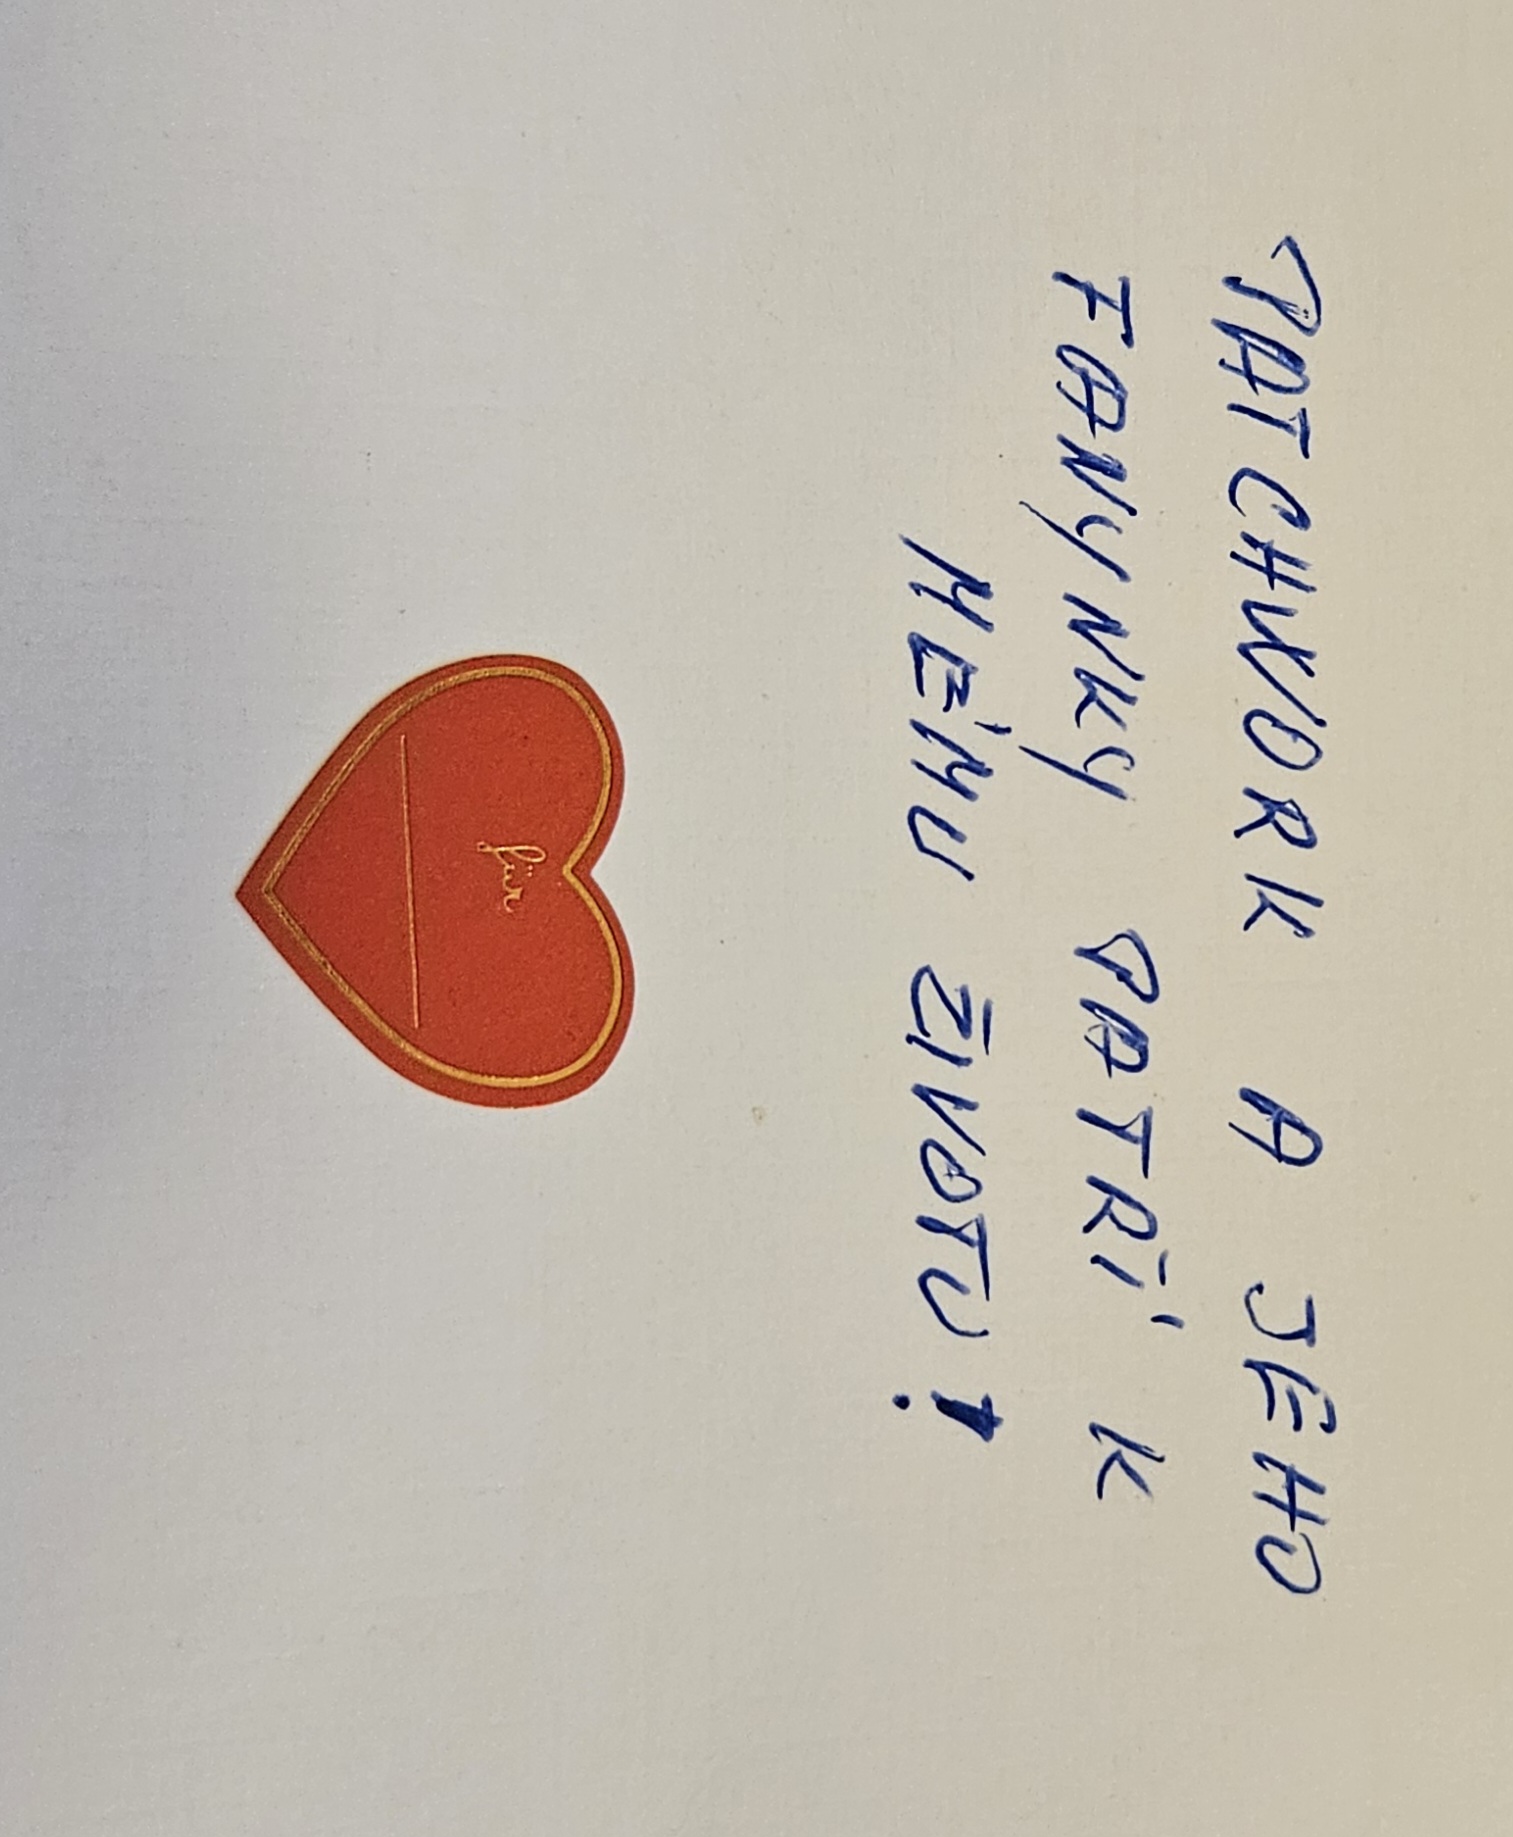 PATCHWORK A JEHO
FANYNKY PATŘÍ K
MÉMU ŽIVOTU!
für